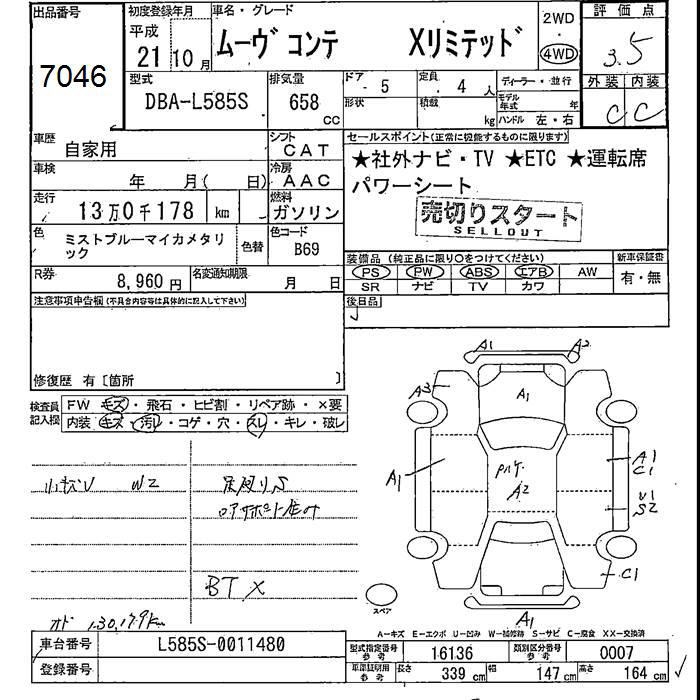 出品番号
7046
初度登録年月
平成
21 10月
車名・グレード
ムーヴ コンテ Xリミテッド
2WD
・
4WD
評価点
3.5
外装 内装
C C
型式
DBA-L585S
排気量
658 cc
ドア
5
形状
定員
4 人
積載
kg
ディーラー・並行
モデル年式 年
ハンドル 左・右
車歴
自家用
シフト
CAT
車検
年 月( 日)
冷房
AAC
走行
13万0千178 km
燃料
ガソリン
色
ミストブルーマイカメタリック
色替
色コード
B69
R券
8,960 円
名変通知期限
月 日
セールスポイント(正常に機能するものに限ります)
★社外ナビ・TV ★ETC ★運転席
パワーシート
売切りスタート
SELLOUT
装備品 (純正品に限り○をつけてください)
PS PW ABS エアB AW
SR ナビ TV カワ
新車保証書
有・無
後日品
注意事項申告欄(不具合内容等は具体的に記入して下さい)
修復歴 有〔箇所 〕
検査員
記入欄
FW キズ・飛石・ヒビ割・リペア跡・×要
内装 キズ・汚レ・コゲ・穴・スレ・キレ・破レ
小キズU W2
足廻りS
ロアサポート
BT X
オド 130,179km
A1 A2
A3
A1
A1
A2
A1
C1
U1
S2
C1
A1
スペア
A-キズ E-エクボ U-凹み W-補修跡 S-サビ C-腐食 XX-交換済
車台番号
L585S-0011480
登録番号
型式指定番号
参考
16136
類別区分番号
参考
0007
車庫証明用
参考
長さ 339 cm 幅 147 cm 高さ 164 cm